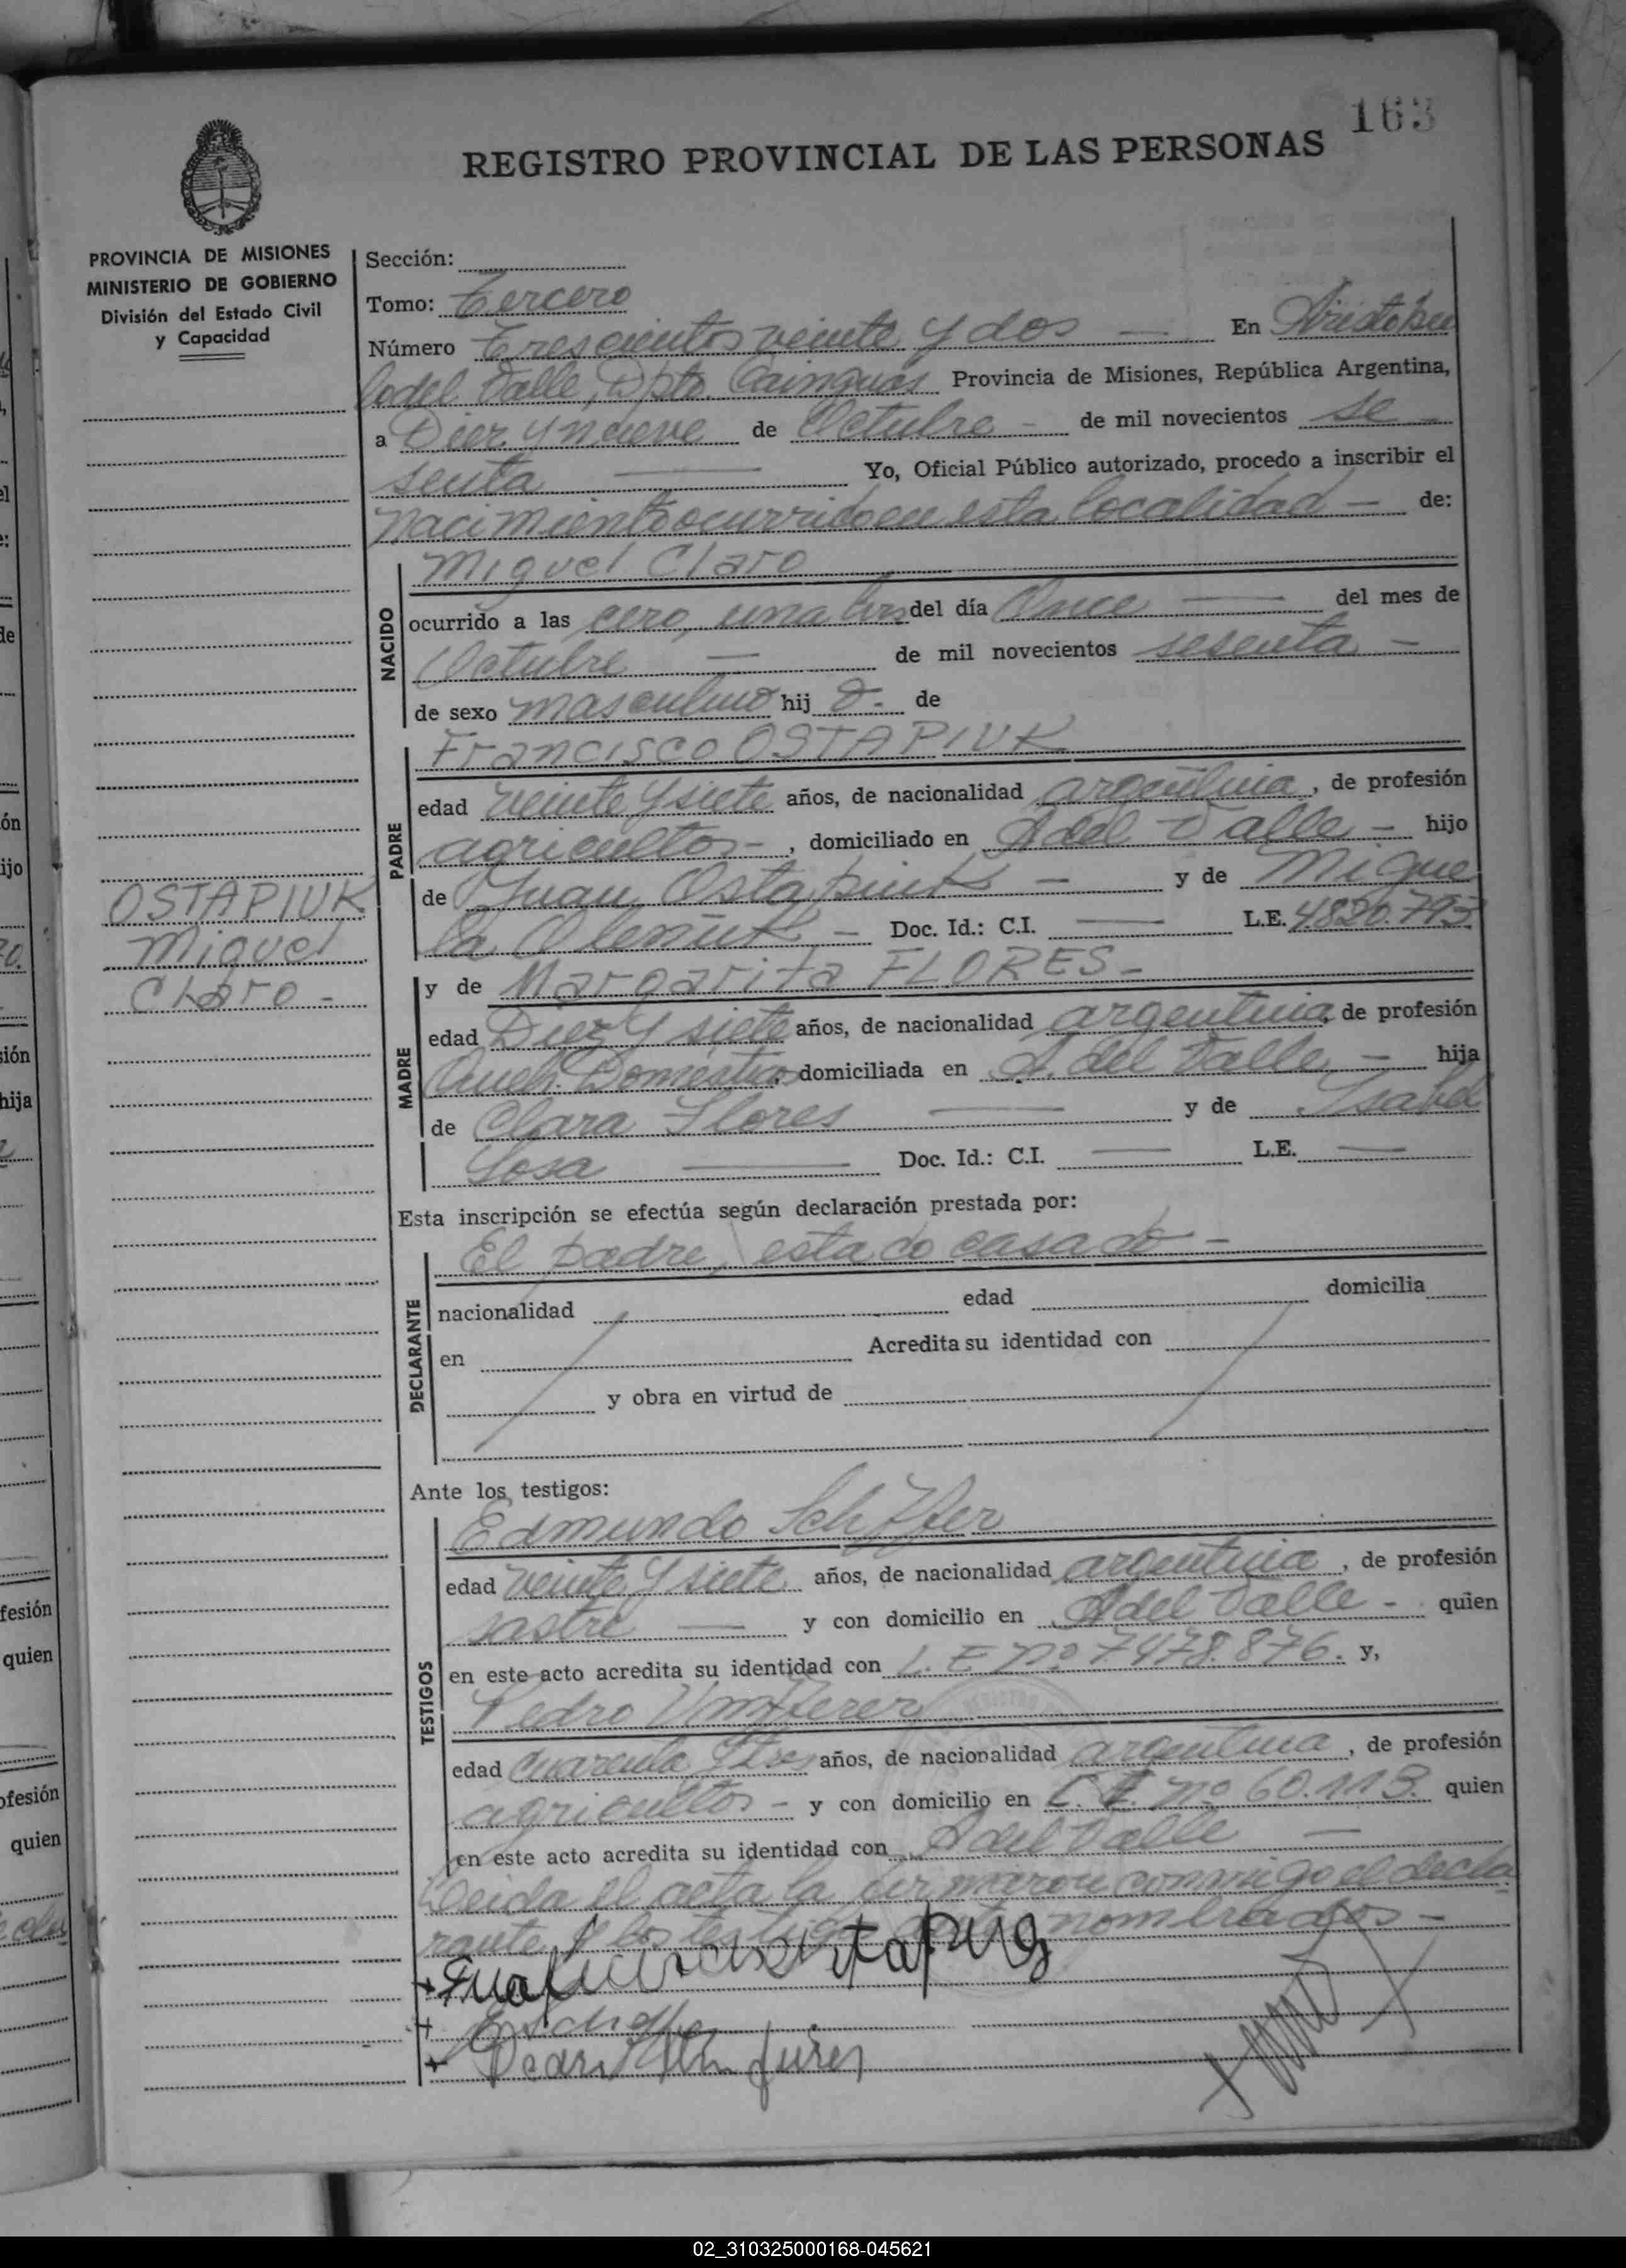 163
REGISTRO PROVINCIAL DE LAS PERSONAS
PROVINCIA DE MISIONES
MINISTERIO DE GOBIERNO
División del Estado Civil
y Capacidad
OSTAPIUK
Miguel
Claro -
Sección:
Tomo: Tercero
Número Trescientos veinte y dos — En Aristobu
lo del Valle, Dpto. Cainguas Provincia de Misiones, República Argentina,
a Diez y nueve de Octubre - de mil novecientos se
senta — Yo, Oficial Público autorizado, procedo a inscribir el
nacimiento ocurrido en esta localidad — de:
NACIDO
Miguel Claro
ocurrido a las cero, una hrs del día Once — del mes de
Octubre — de mil novecientos sesenta -
de sexo masculino hij o - de
PADRE
Francisco OSTAPIUK
edad veinte y siete años, de nacionalidad argentina, de profesión
agricultor -, domiciliado en A del Valle - hijo
de Juan Ostapiuk — y de Migue
la - Doc. Id.: C.I. — L.E. 4.820.793
MADRE
y de Margarita FLORES -
edad Diez y siete años, de nacionalidad argentina de profesión
Queh. Domesticos domiciliada en A. del Valle — hija
de Clara Flores — y de Isabel
Sosa — Doc. Id.: C.I. — L.E. —
Esta inscripción se efectúa según declaración prestada por:
DECLARANTE
El padre, estado casado -
nacionalidad edad domicilia
en Acredita su identidad con
y obra en virtud de
Ante los testigos:
TESTIGOS
Edmundo Schiffer
edad veinte y siete años, de nacionalidad argentina, de profesión
sastre — y con domicilio en A del Valle - quien
en este acto acredita su identidad con L.E. nº 7.478.876. y,
Pedro
edad cuarenta y tres años, de nacionalidad argentina, de profesión
agricultor - y con domicilio en C.I. nº 60.113. quien
en este acto acredita su identidad con A del Valle —
Leida el acta la firmaron conmigo el decla
rante y los testigos nombrados -
02_310325000168-045621